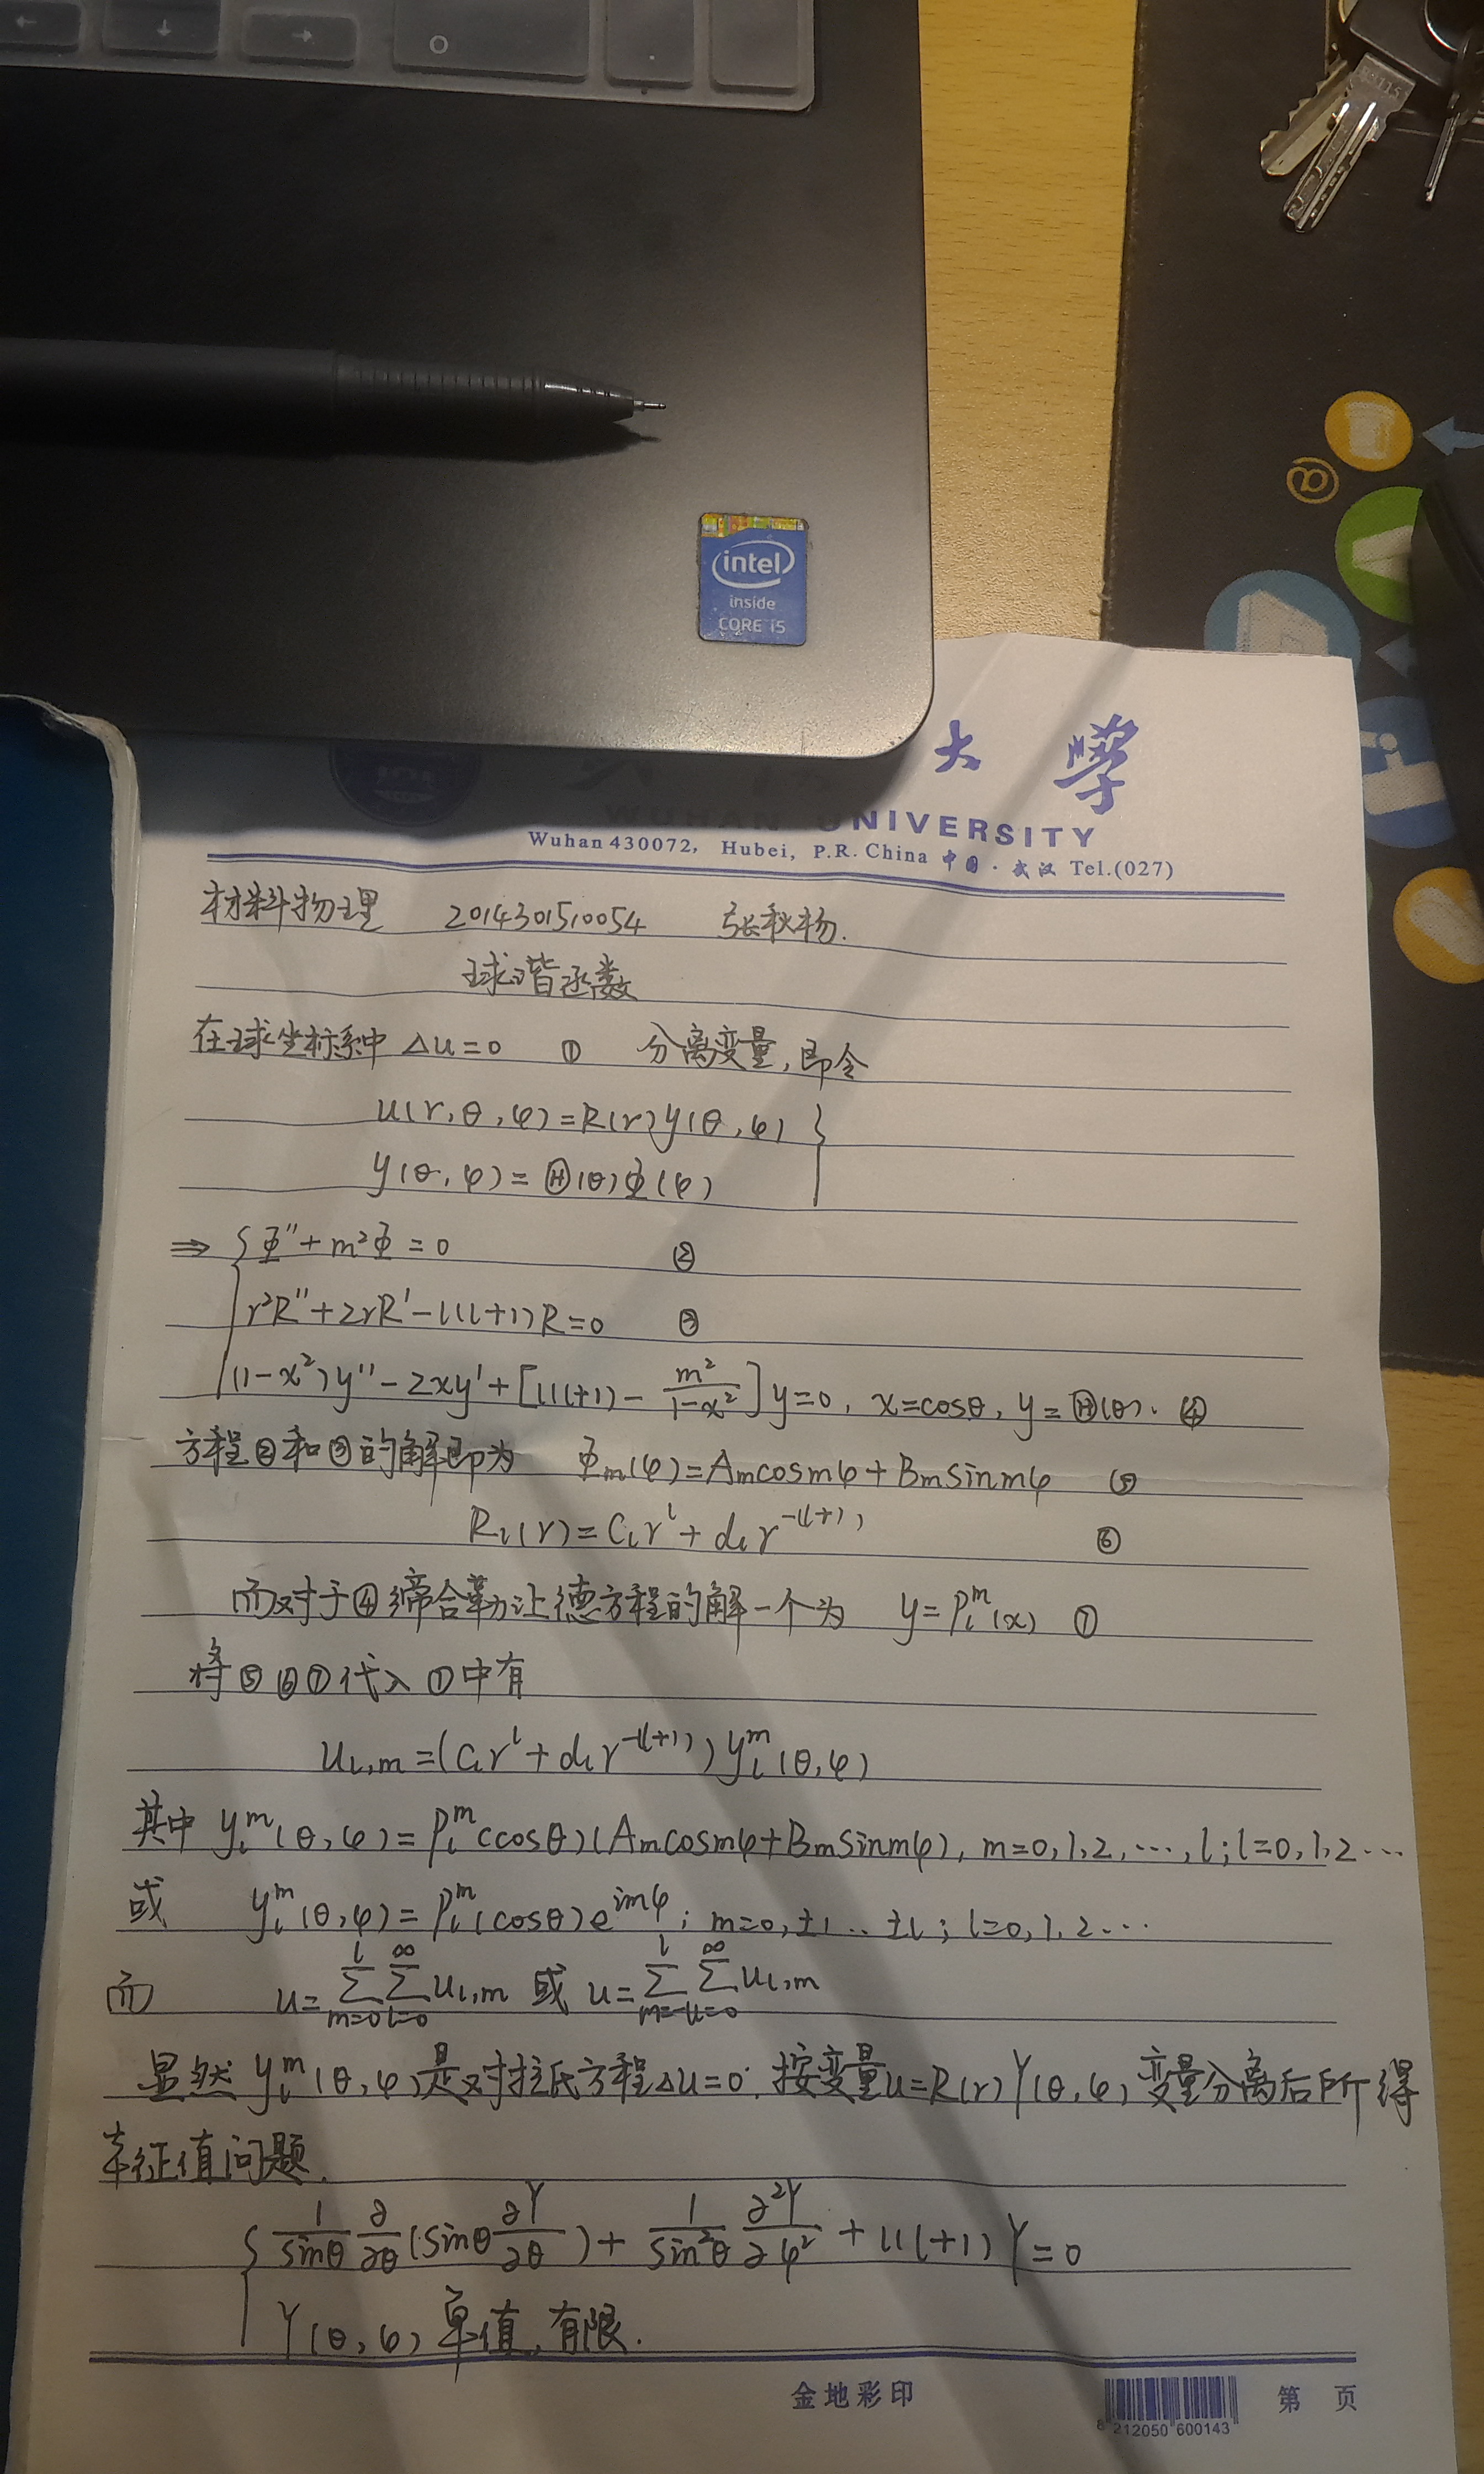 intel
inside
CORE i5
@
大 学
WUHAN UNIVERSITY
Wuhan 430072, Hubei, P.R. China 中国·武汉 Tel.(027)
材料物理 2014301510054 张秋杨.
球谐函数
在球坐标系中 Δu=0 ① 分离变量,即令
u(r,θ,φ)=R(r)y(θ,φ) }
y(θ,φ)=Θ(θ)Φ(φ)
⇒ { Φ''+m²Φ=0 ②
r²R''+2rR'-l(l+1)R=0 ③
(1-x²)y''-2xy'+[l(l+1)-m²/(1-x²)]y=0, x=cosθ, y=Θ(θ). ④
方程②和③的解即为 Φm(φ)=Amcosmφ+Bmsinmφ ⑤
Rl(r)=Clr^l+dlr^-(l+1) ⑥
而对于④缔合勒让德方程的解一个为 y=Pl^m(x) ⑦
将⑤⑥⑦代入①中有
ul,m=(Clr^l+dlr^-(l+1))yl^m(θ,φ)
其中 yl^m(θ,φ)=Pl^m(cosθ)(Amcosmφ+Bmsinmφ), m=0,1,2,…,l;l=0,1,2…
或 yl^m(θ,φ)=Pl^m(cosθ)e^imφ; m=0,±1…±l; l=0,1,2…
而 u=∑(m=0→l)∑(l=0→∞)ul,m 或 u=∑(m=-l→l)∑(l=0→∞)ul,m
显然 yl^m(θ,φ)是对拉氏方程Δu=0.按变量u=R(r)Y(θ,φ)变量分离后所得
本征值问题.
{ 1/sinθ ∂/∂θ(sinθ ∂Y/∂θ)+1/sin²θ ∂²Y/∂φ²+l(l+1)Y=0
Y(θ,φ)单值,有限.
金地彩印
8 212050 600143
第 页